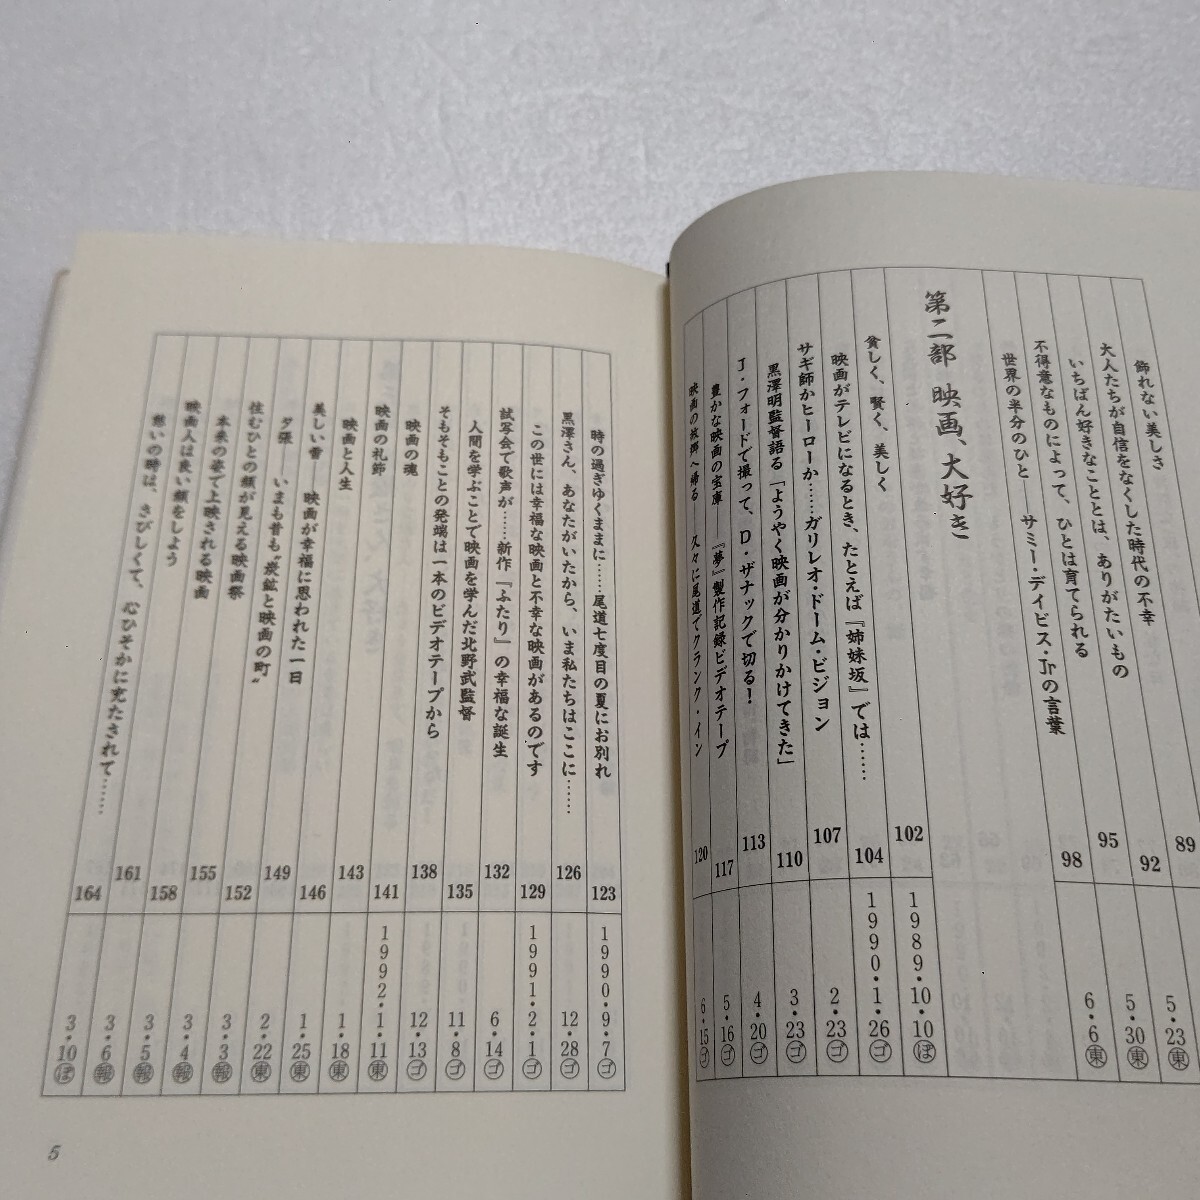 飾れない美しさ 89 5・23 ㊎
大人たちが自信をなくした時代の不幸 92 5・30
いちばん好きなこととは、ありがたいもの 95 6・6
不得意なものによって、ひとは育てられる 98
世界の半分のひと サミー・デイビス・Jrの言葉
第二部 映画、大好き
貧しく、賢く、美しく 102 1989・10・10 ほ
映画がテレビになるとき、たとえば『姉妹坂』では…… 104 1990・1・26 ゴ
サギ師かヒーローか……ガリレオ・ドーム・ビジョン 107 2・23 ゴ
黒澤明監督語る「ようやく映画が分かりかけてきた」 110 3・23 ゴ
J・フォードで撮って、D・ザナックで切る！ 113 4・20 ゴ
豊かな映画の宝庫――『夢』製作記録ビデオテープ 117 5・16 ゴ
映画の故郷へ帰る 久々に尾道でクランク・イン 120 6・15 ゴ
時の過ぎゆくままに……尾道七度目の夏にお別れ 123 1990・9・7 ゴ
黒澤さん、あなたがいたから、いま私たちはここに…… 126 12・28 ゴ
この世には幸福な映画と不幸な映画があるのです 129 1991・2・1 ゴ
試写会で歌声が……新作『ふたり』の幸福な誕生 132 6・14 ゴ
人間を学ぶことで映画を学んだ北野武監督 135 11・8 ゴ
そもそもことの発端は一本のビデオテープから 138 12・13 ゴ
映画の魂 141 1992・1・11 東
映画の礼節 143 1・18 東
映画と人生 146 1・25 東
美しい雪――映画が幸福に思われた一日 149 2・22 東
夕張――いまも昔も〝炭鉱と映画の町〟 152 3・3 報
住むひとの顔が見える映画祭 155 3・4 報
本来の姿で上映される映画 158 3・5 報
映画人は良い顔をしよう 161 3・6 報
愁いの時は、さびしくて、心ひそかに充たされて…… 164 3・10 ほ
5